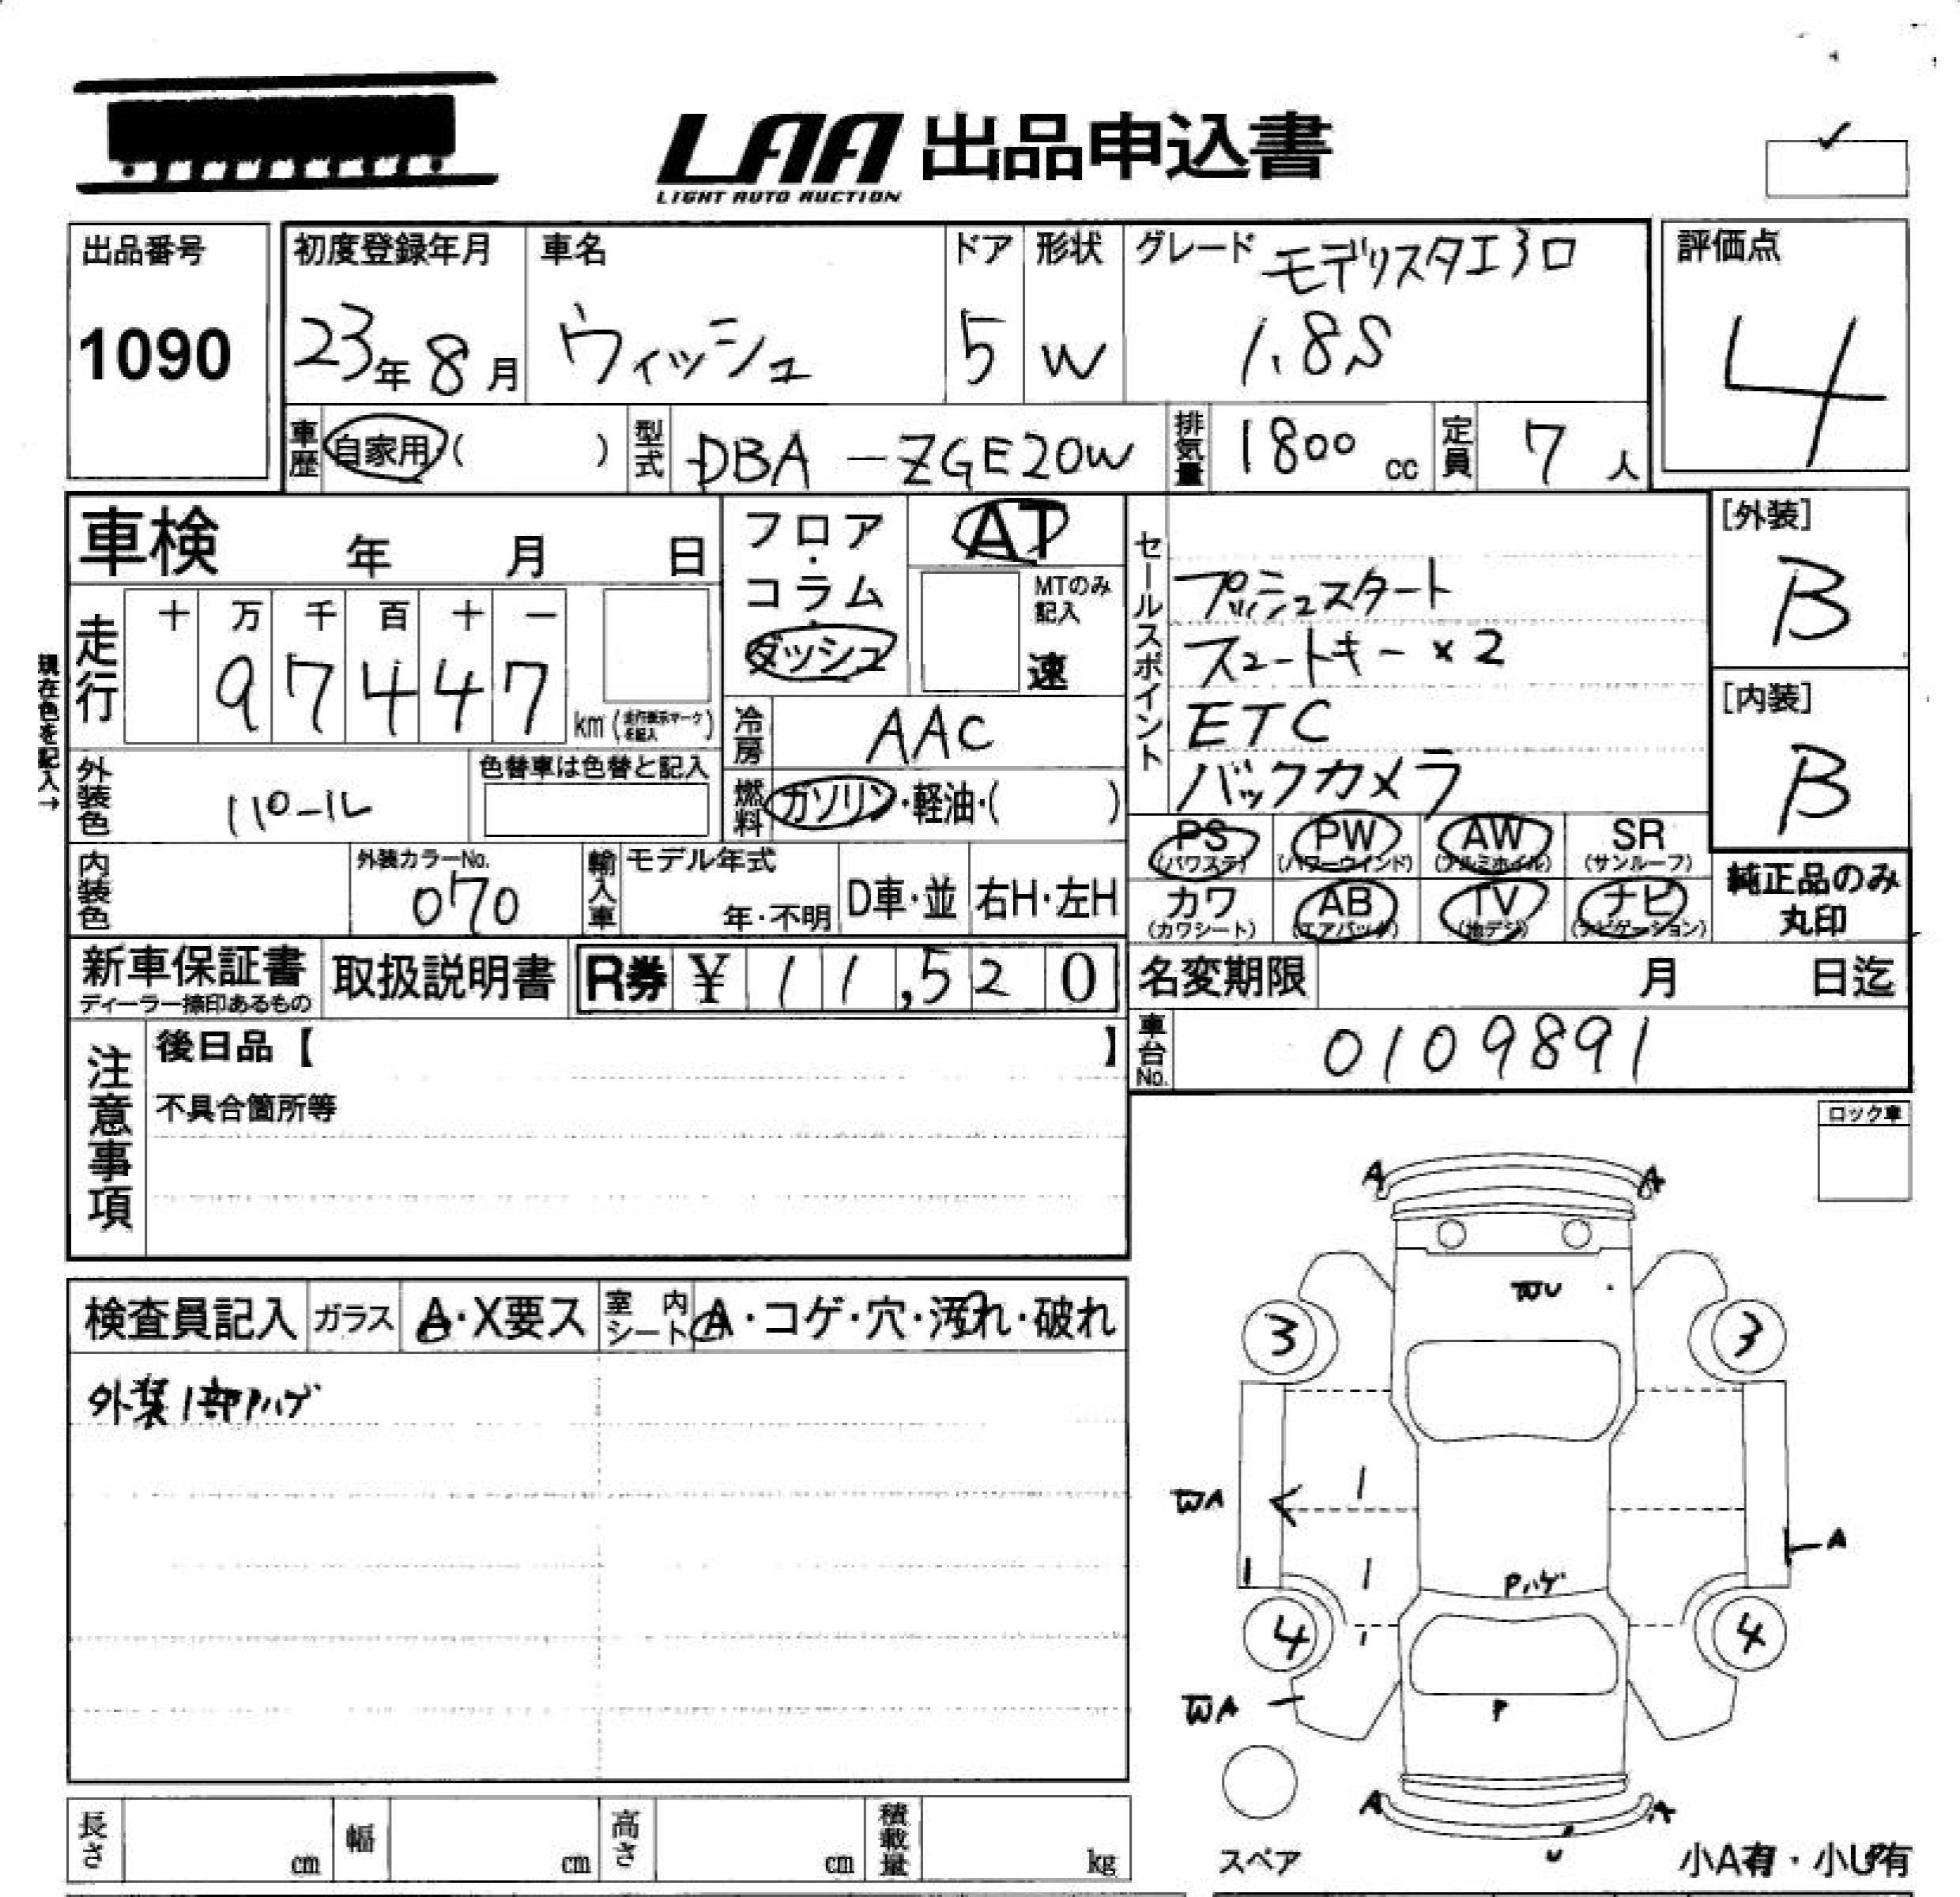 LAA 出品申込書
LIGHT AUTO AUCTION
出品番号
1090
初度登録年月
23年 8月
車名
ウィッシュ
ドア
5
形状
W
グレード モデリスタエアロ
1.8S
評価点
4
車歴 自家用・( )
型式 DBA-ZGE20W
排気量 1800 cc
定員 7 人
車検 年 月 日
フロア・コラム・ダッシュ
AT
MTのみ記入
速
セールスポイント
プッシュスタート
スマートキー×2
ETC
バックカメラ
[外装]
B
[内装]
B
現在色を記入→
走行
十 万 千 百 十 一
9 7 4 4 7
km (走行表示マークを記入)
冷房 AAC
外装色 パール
色替車は色替と記入
燃料 ガソリン・軽油・( )
PS (パワステ)
PW (パワーウインド)
AW (アルミホイル)
SR (サンルーフ)
内装色
外装カラーNo.
070
輸入車
モデル年式
年・不明
D車・並
右H・左H
カワ (カワシート)
AB (エアバック)
TV (地デジ)
ナビ (ナビゲーション)
純正品のみ
丸印
新車保証書
ディーラー捺印あるもの
取扱説明書
R券 ¥ 11,520
名変期限 月 日迄
車台No. 0109891
注意事項
後日品【 】
不具合箇所等
ロック車
A A
WU
3 3
検査員記入 ガラス A・X要ス 室内シート A・コゲ・穴・汚れ・破れ
外装1部Pハゲ
WA
A
Pハゲ
4 4
WA
P
A A
U
スペア
小A有・小U有
長さ cm
幅 cm
高さ cm
積載量 kg